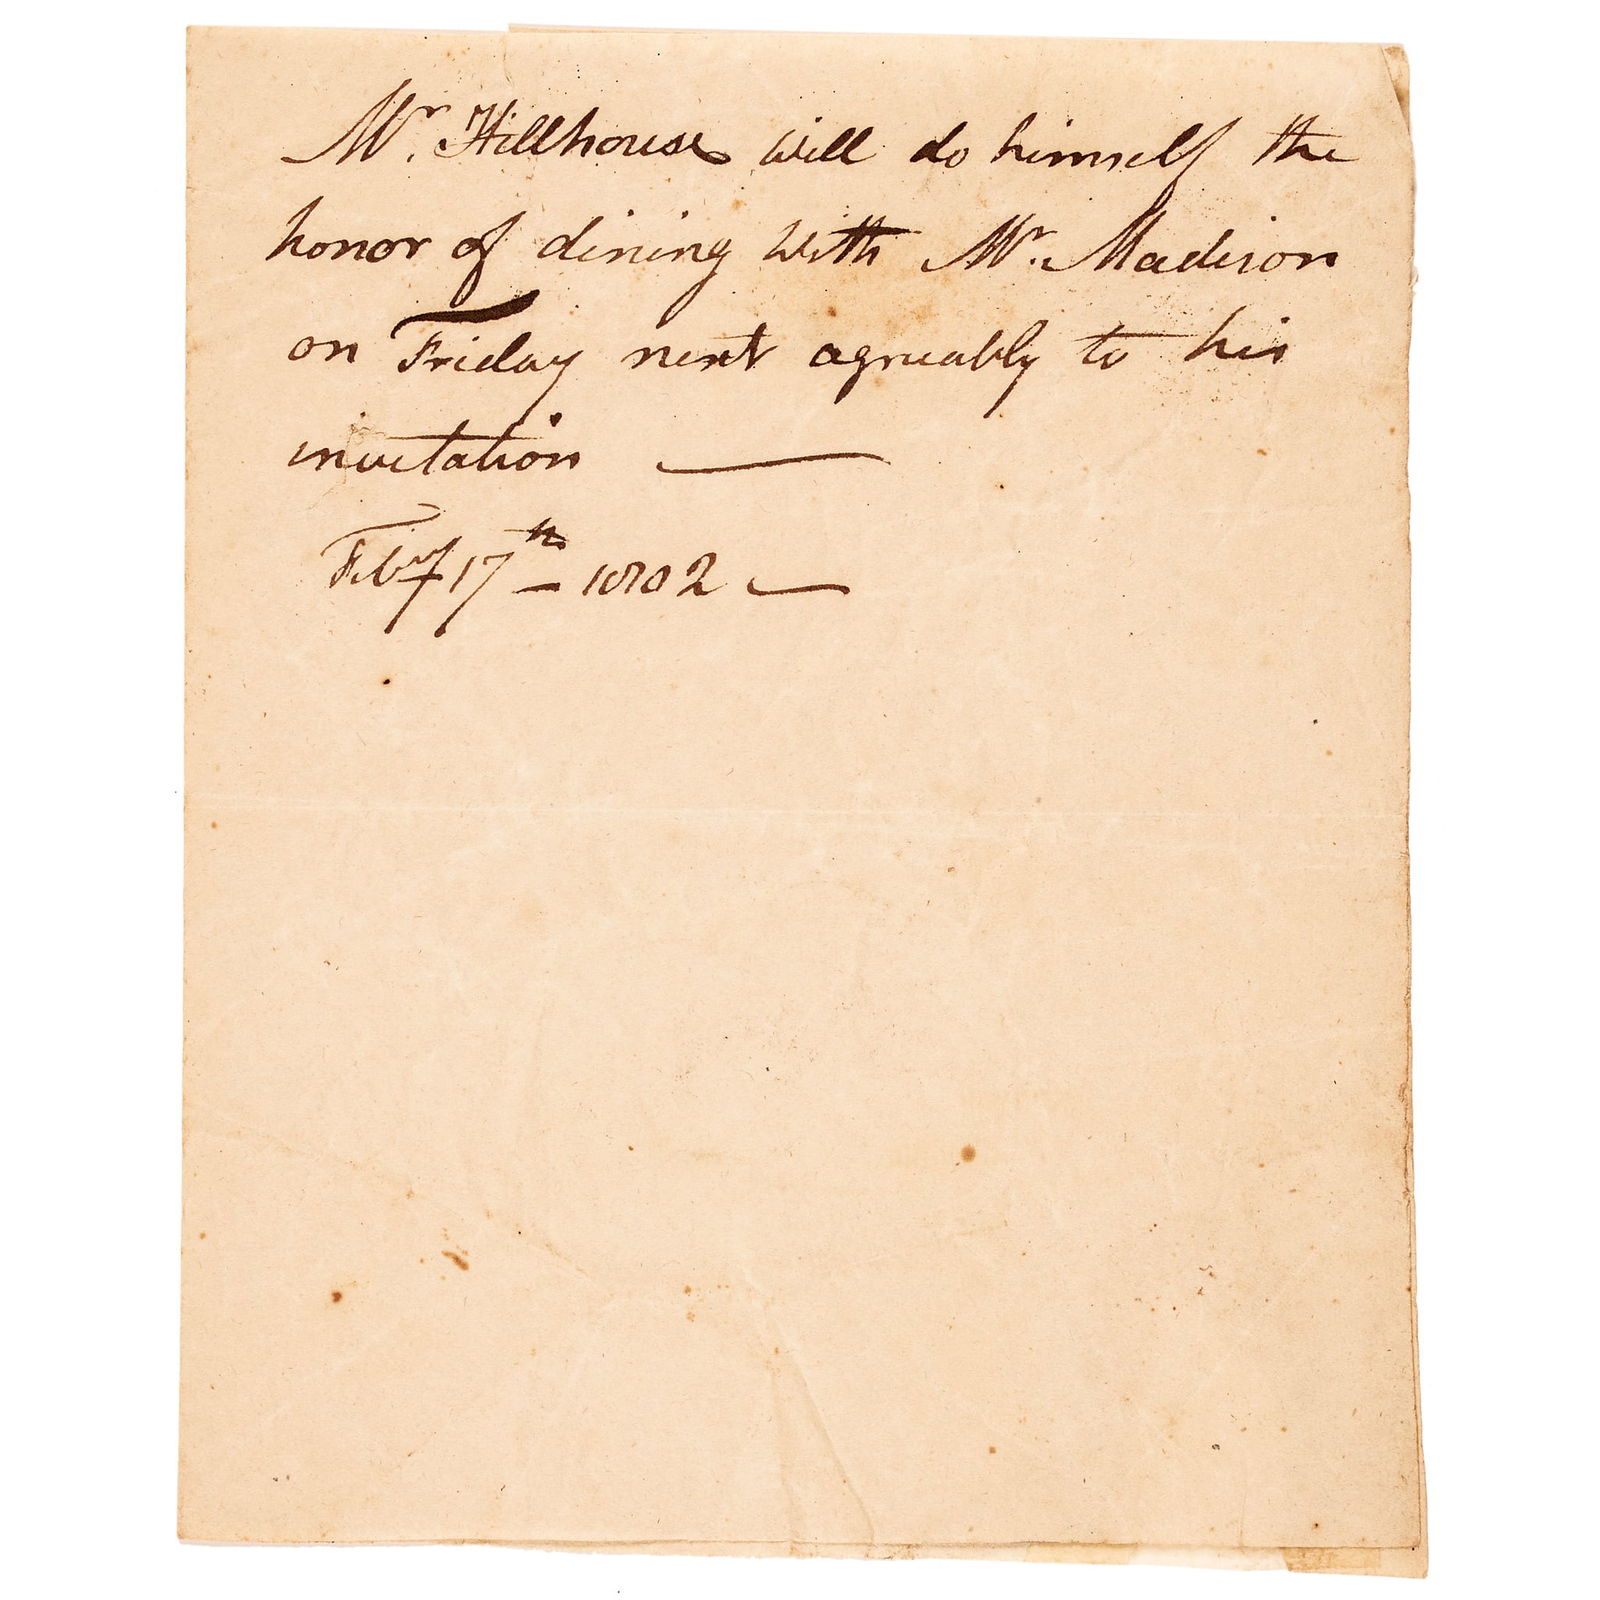 Mr. Hillhouse will do himself the
honor of dining with Mr. Madison
on Friday next agreeably to his
invitation —
Feby 17th – 1802 —